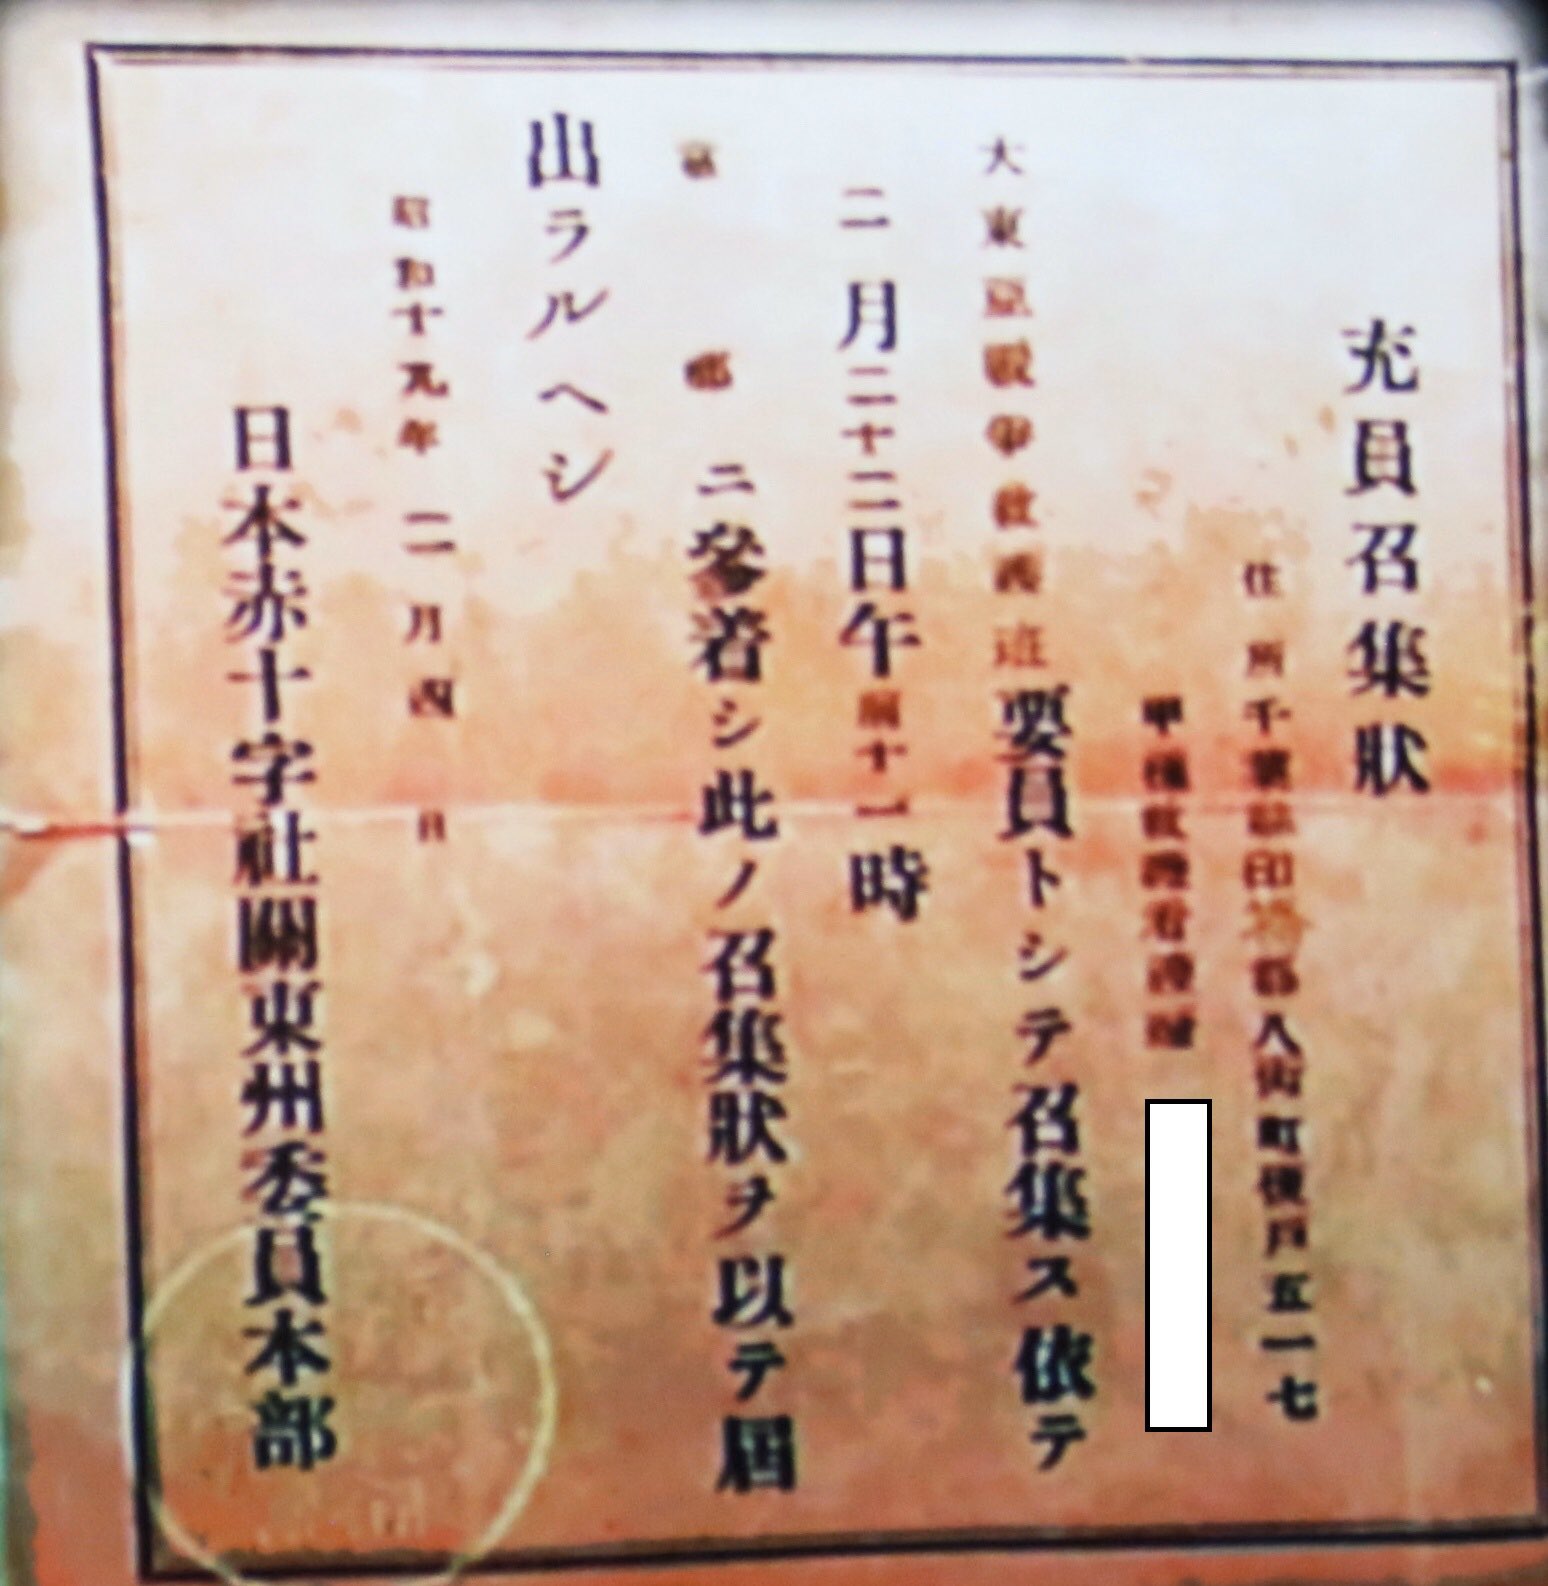 充員召集狀
住所千葉縣印旛郡八街町榎戸五一七
甲種救護看護婦
大東亞戰爭救護班要員トシテ召集ス依テ
二月二十二日午前十一時
京都ニ參着シ此ノ召集狀ヲ以テ届
出ラルヘシ
昭和十九年二月四日
日本赤十字社關東州委員本部